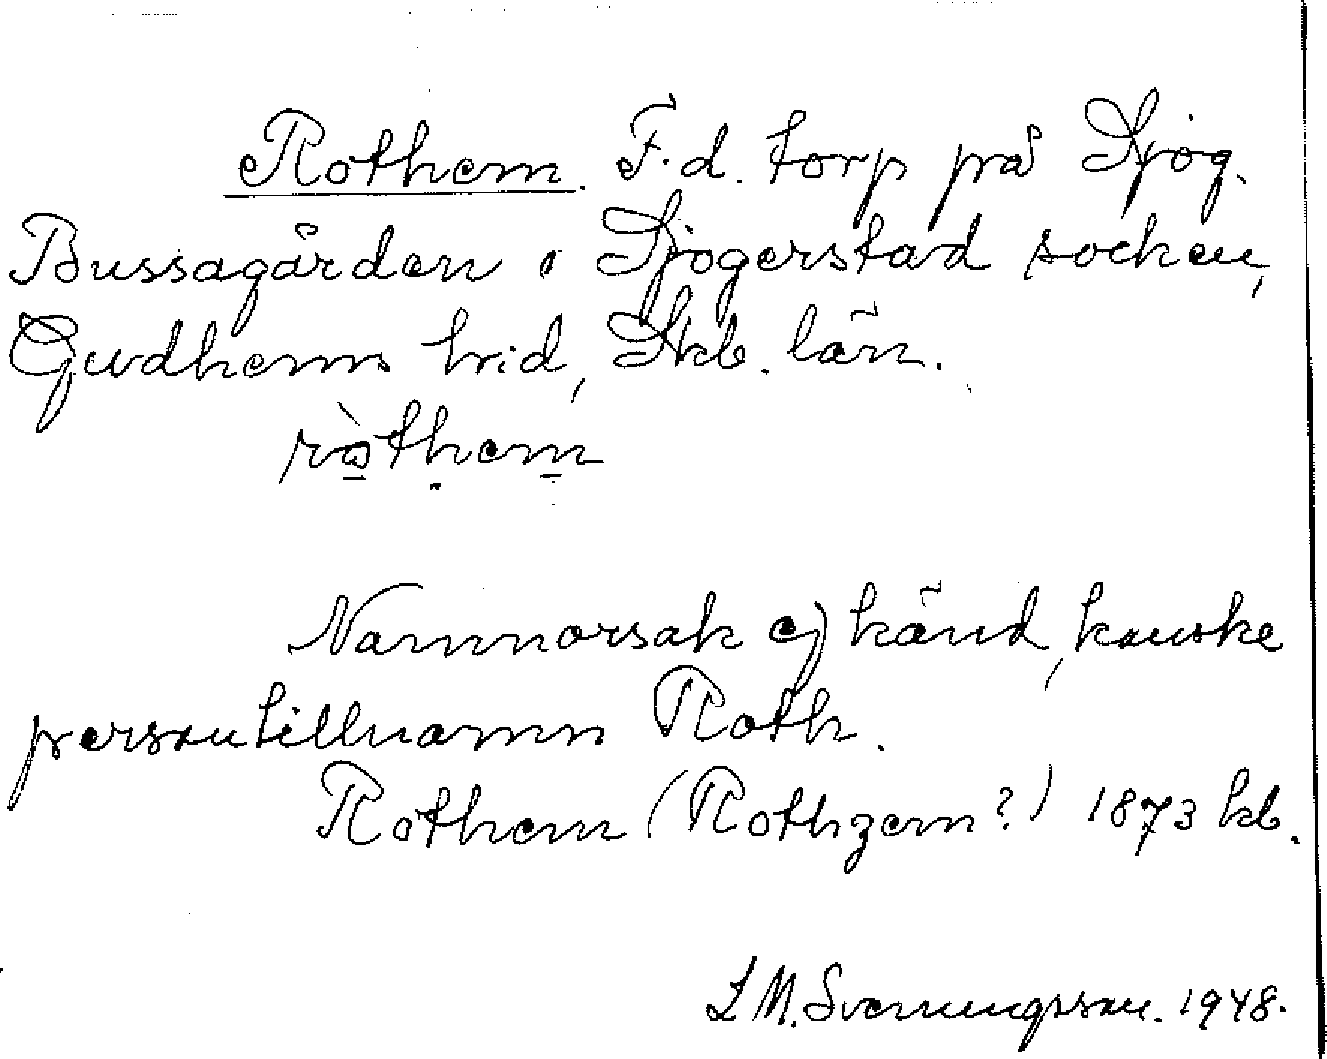 Rothem. F.d. torp på Sjög.
Bussagården i Sjogerstad socken,
Gudhems hrid, Skb. län.
ròthem
Namnorsak ej känd, kanske
persontillnamn Roth.
Rothem (Rothzem?) 1873 kb.
L M. Svenungsson. 1948.